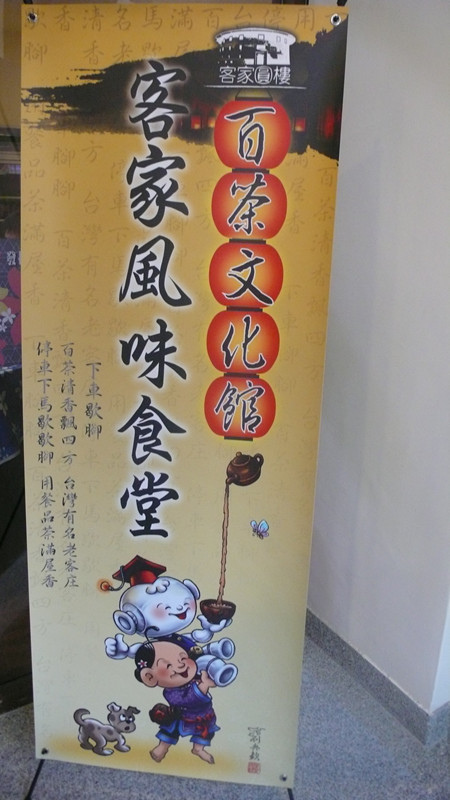 客家圓樓
百茶文化館
客家風味食堂
下車歇腳
百茶清香飄四方 台灣有名老客庄
停車下馬歇歇腳 用餐品茶滿屋香